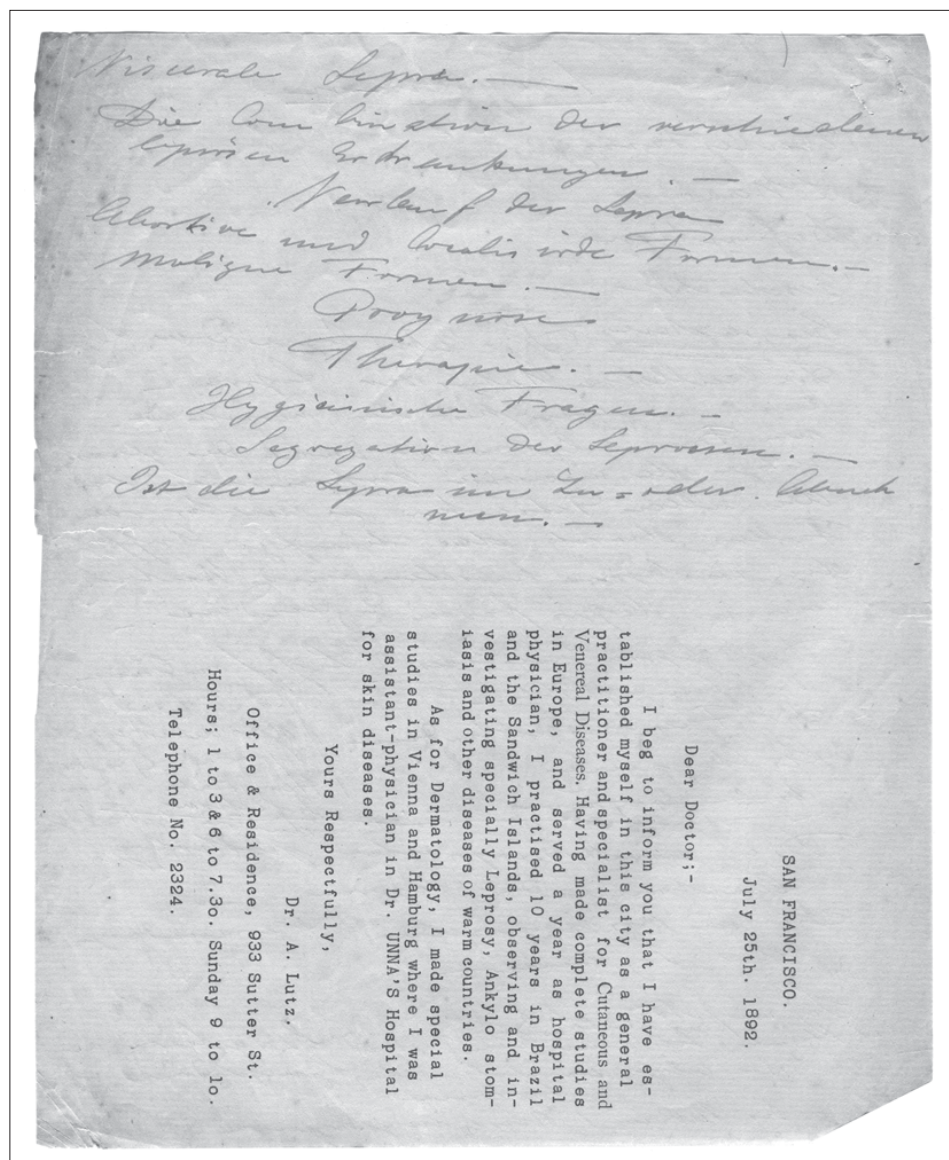 Viscerale Lepra. —
Die Combination der verschiedenen
leprösen Erkrankungen. —
Verlauf der Lepra
Abortive und localisirte Formen. —
Maligne Formen. —
Prognose
Therapie. —
Hygieinische Fragen. —
Segregation der Leprosen. —
Ist die Lepra im Zu- oder Abneh
men. —
SAN FRANCISCO.
July 25th. 1892.
Dear Doctor;-
I beg to inform you that I have es-
tablished myself in this city as a general
practitioner and specialist for Cutaneous and
Venereal Diseases. Having made complete studies
in Europe, and served a year as hospital
physician, I practised 10 years in Brazil
and the Sandwich Islands, observing and in-
vestigating specially Leprosy, Ankylo stom-
iasis and other diseases of warm countries.
As for Dermatology, I made special
studies in Vienna and Hamburg where I was
assistant-physician in Dr. UNNA'S Hospital
for skin diseases.
Yours Respectfully,
Dr. A. Lutz,
Office & Residence, 933 Sutter St.
Hours; 1 to 3 & 6 to 7.3o. Sunday 9 to lo.
Telephone No. 2324.